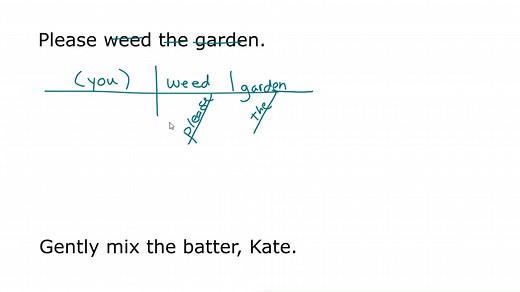 Please weed the garden.
(you) weed garden
please the
Gently mix the batter, Kate.